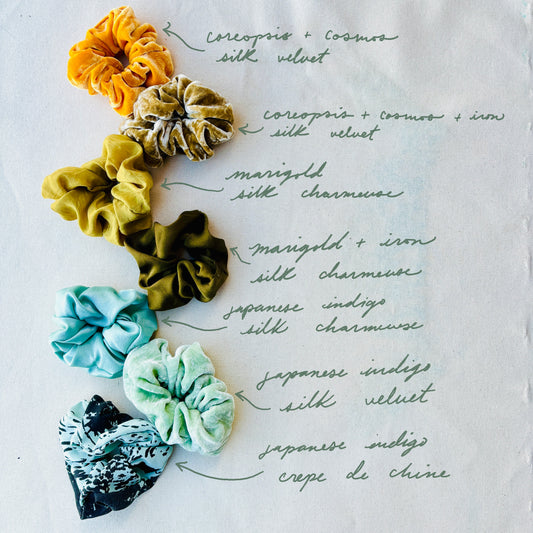 coreopsis + cosmos
silk velvet
coreopsis + cosmos + iron
silk velvet
marigold
silk charmeuse
marigold + iron
silk charmeuse
japanese indigo
silk charmeuse
japanese indigo
silk velvet
japanese indigo
crepe de chine